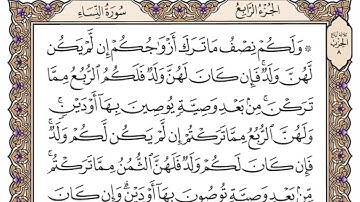 سُورَةُ النِّسَاءِ الجُزْءُ الرَّابِعُ
۞ وَلَكُمْ نِصْفُ مَا تَرَكَ أَزْوَٰجُكُمْ إِن لَّمْ يَكُن
لَّهُنَّ وَلَدٌ ۚ فَإِن كَانَ لَهُنَّ وَلَدٌ فَلَكُمُ ٱلرُّبُعُ مِمَّا
تَرَكْنَ ۚ مِنۢ بَعْدِ وَصِيَّةٍ يُوصِينَ بِهَآ أَوْ دَيْنٍ ۚ
وَلَهُنَّ ٱلرُّبُعُ مِمَّا تَرَكْتُمْ إِن لَّمْ يَكُن لَّكُمْ وَلَدٌ ۚ
فَإِن كَانَ لَكُمْ وَلَدٌ فَلَهُنَّ ٱلثُّمُنُ مِمَّا تَرَكْتُم ۚ
مِّنۢ بَعْدِ وَصِيَّةٍ تُوصُونَ بِهَآ أَوْ دَيْنٍ ۗ وَإِن كَانَ
الحِزْب
٨